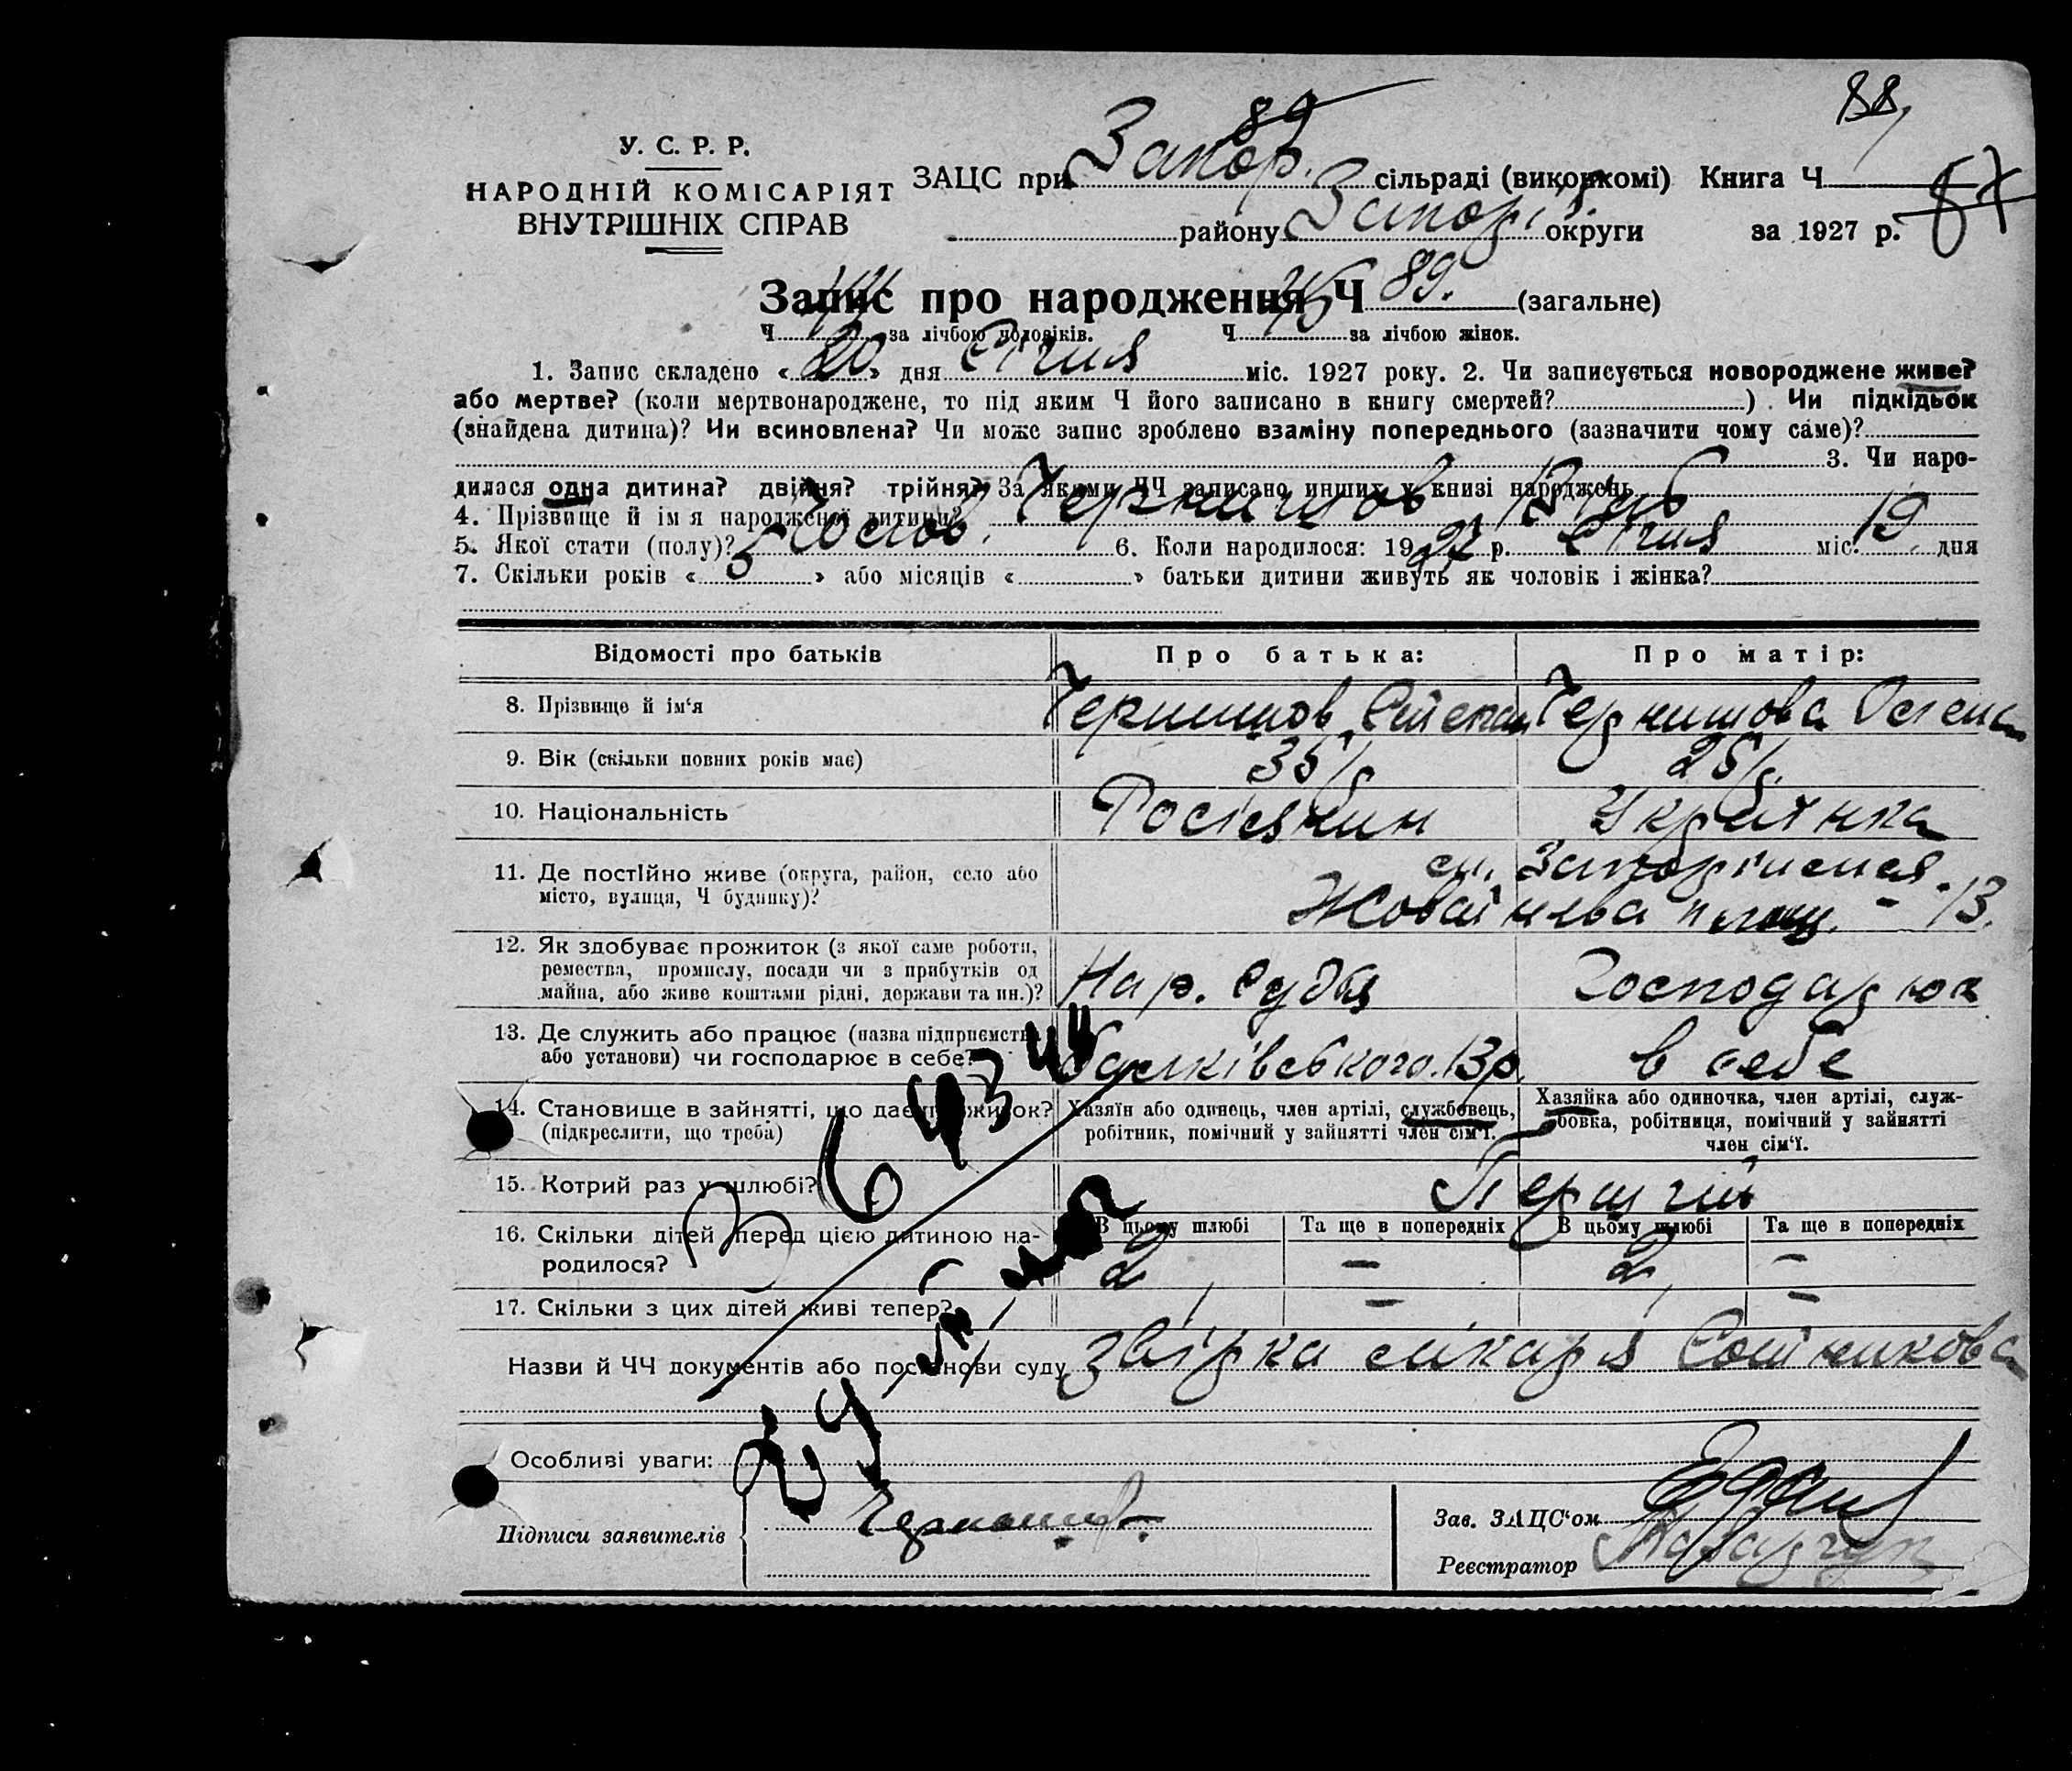 88
У. С. Р. Р.
НАРОДНІЙ КОМІСАРІЯТ
ВНУТРІШНІХ СПРАВ
89
ЗАЦС при Запор. сільраді (виконкомі) Книга Ч 87
району Запоріз. округи за 1927 р.
Запис про народження Ч 89. (загальне)
Ч за лічбою чоловіків. Ч за лічбою жінок.
1. Запис складено « 20 » дня Січня міс. 1927 року. 2. Чи записується новороджене живе?
або мертве? (коли мертвонароджене, то під яким Ч його записано в книгу смертей? ) . Чи підкідьок
(знайдена дитина)? Чи всиновлена? Чи може запис зроблено взаміну попереднього (зазначити чому саме)?
3. Чи наро-
дилася одна дитина? двійня? трійня? За якими ЧЧ записано инших у книзі народжень
4. Прізвище й ім'я народженої дитини? Чернишов Гліб
5. Якої стати (полу)? Чолов. 6. Коли народилося: 1927 р. Січня міс. 19 дня
7. Скільки років « 5 » або місяців « » батьки дитини живуть як чоловік і жінка?
Відомості про батьків Про батька: Про матір:
8. Прізвище й ім'я Чернишов Степан Чернишова
9. Вік (скільки повних років має) 35 р. 25 р.
10. Національність Росіянин Українка
11. Де постійно живе (округа, район, село або
місто, вулиця, Ч будинку)? ст. Запоріжжя
Жовтнева площ. - 13.
12. Як здобуває прожиток (з якої саме роботи,
ремества, промислу, посади чи з прибутків од
майна, або живе коштами рідні, держави та ин.)? Нар. Суддя Господарює
13. Де служить або працює (назва підприємства
або установи) чи господарює в себе? в себе
14. Становище в зайнятті, що дає прожиток?
(підкреслити, що треба)
Хазяїн або одинець, член артілі, службовець,
робітник, помічний у зайнятті член сім'ї.
Хазяйка або одиночка, член артілі, служ-
бовка, робітниця, помічний у зайнятті
член сім'ї.
15. Котрий раз у шлюбі? Перший
16. Скільки дітей перед цією дитиною на-
родилося?
В цьому шлюбі Та ще в попередніх В цьому шлюбі Та ще в попередніх
2 - 2 -
17. Скільки з цих дітей живі тепер? 1 - 1 -
Назви й ЧЧ документів або постанови суду звірка лікаря Сотникова
Особливі уваги:
Підписи заявителів Чернишов
Зав. ЗАЦС'ом
Реєстратор